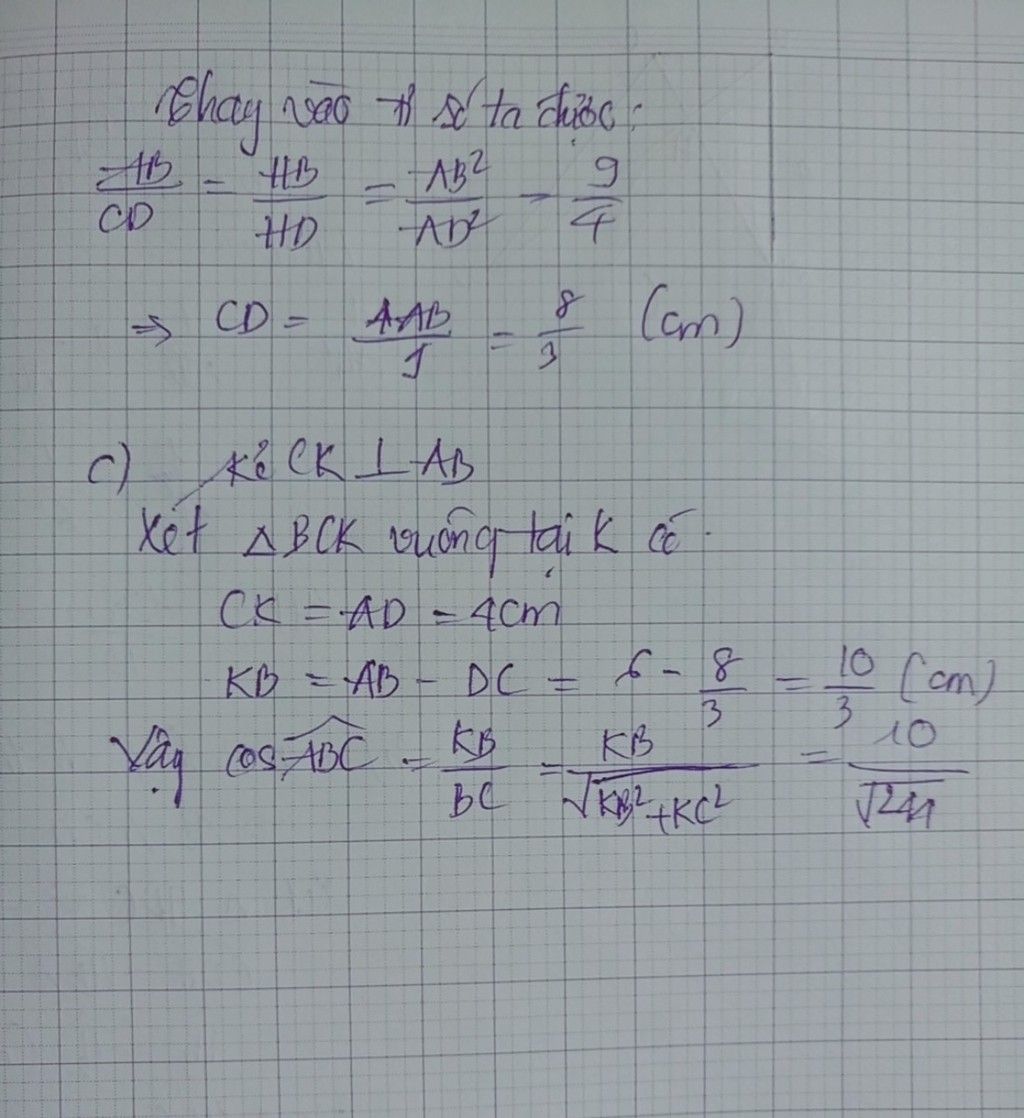 Thay vào tỉ số ta được:
AB/CD = HB/HD = AB²/AD² = 9/4
⇒ CD = 4AB/9 = 8/3 (cm)
c) Kẻ CK ⊥ AB
Xét △BCK vuông tại K có
CK = AD = 4cm
KB = AB - DC = 6 - 8/3 = 10/3 (cm)
Vậy cos ABC = KB/BC = KB/√(KB²+KC²) = 10/√244